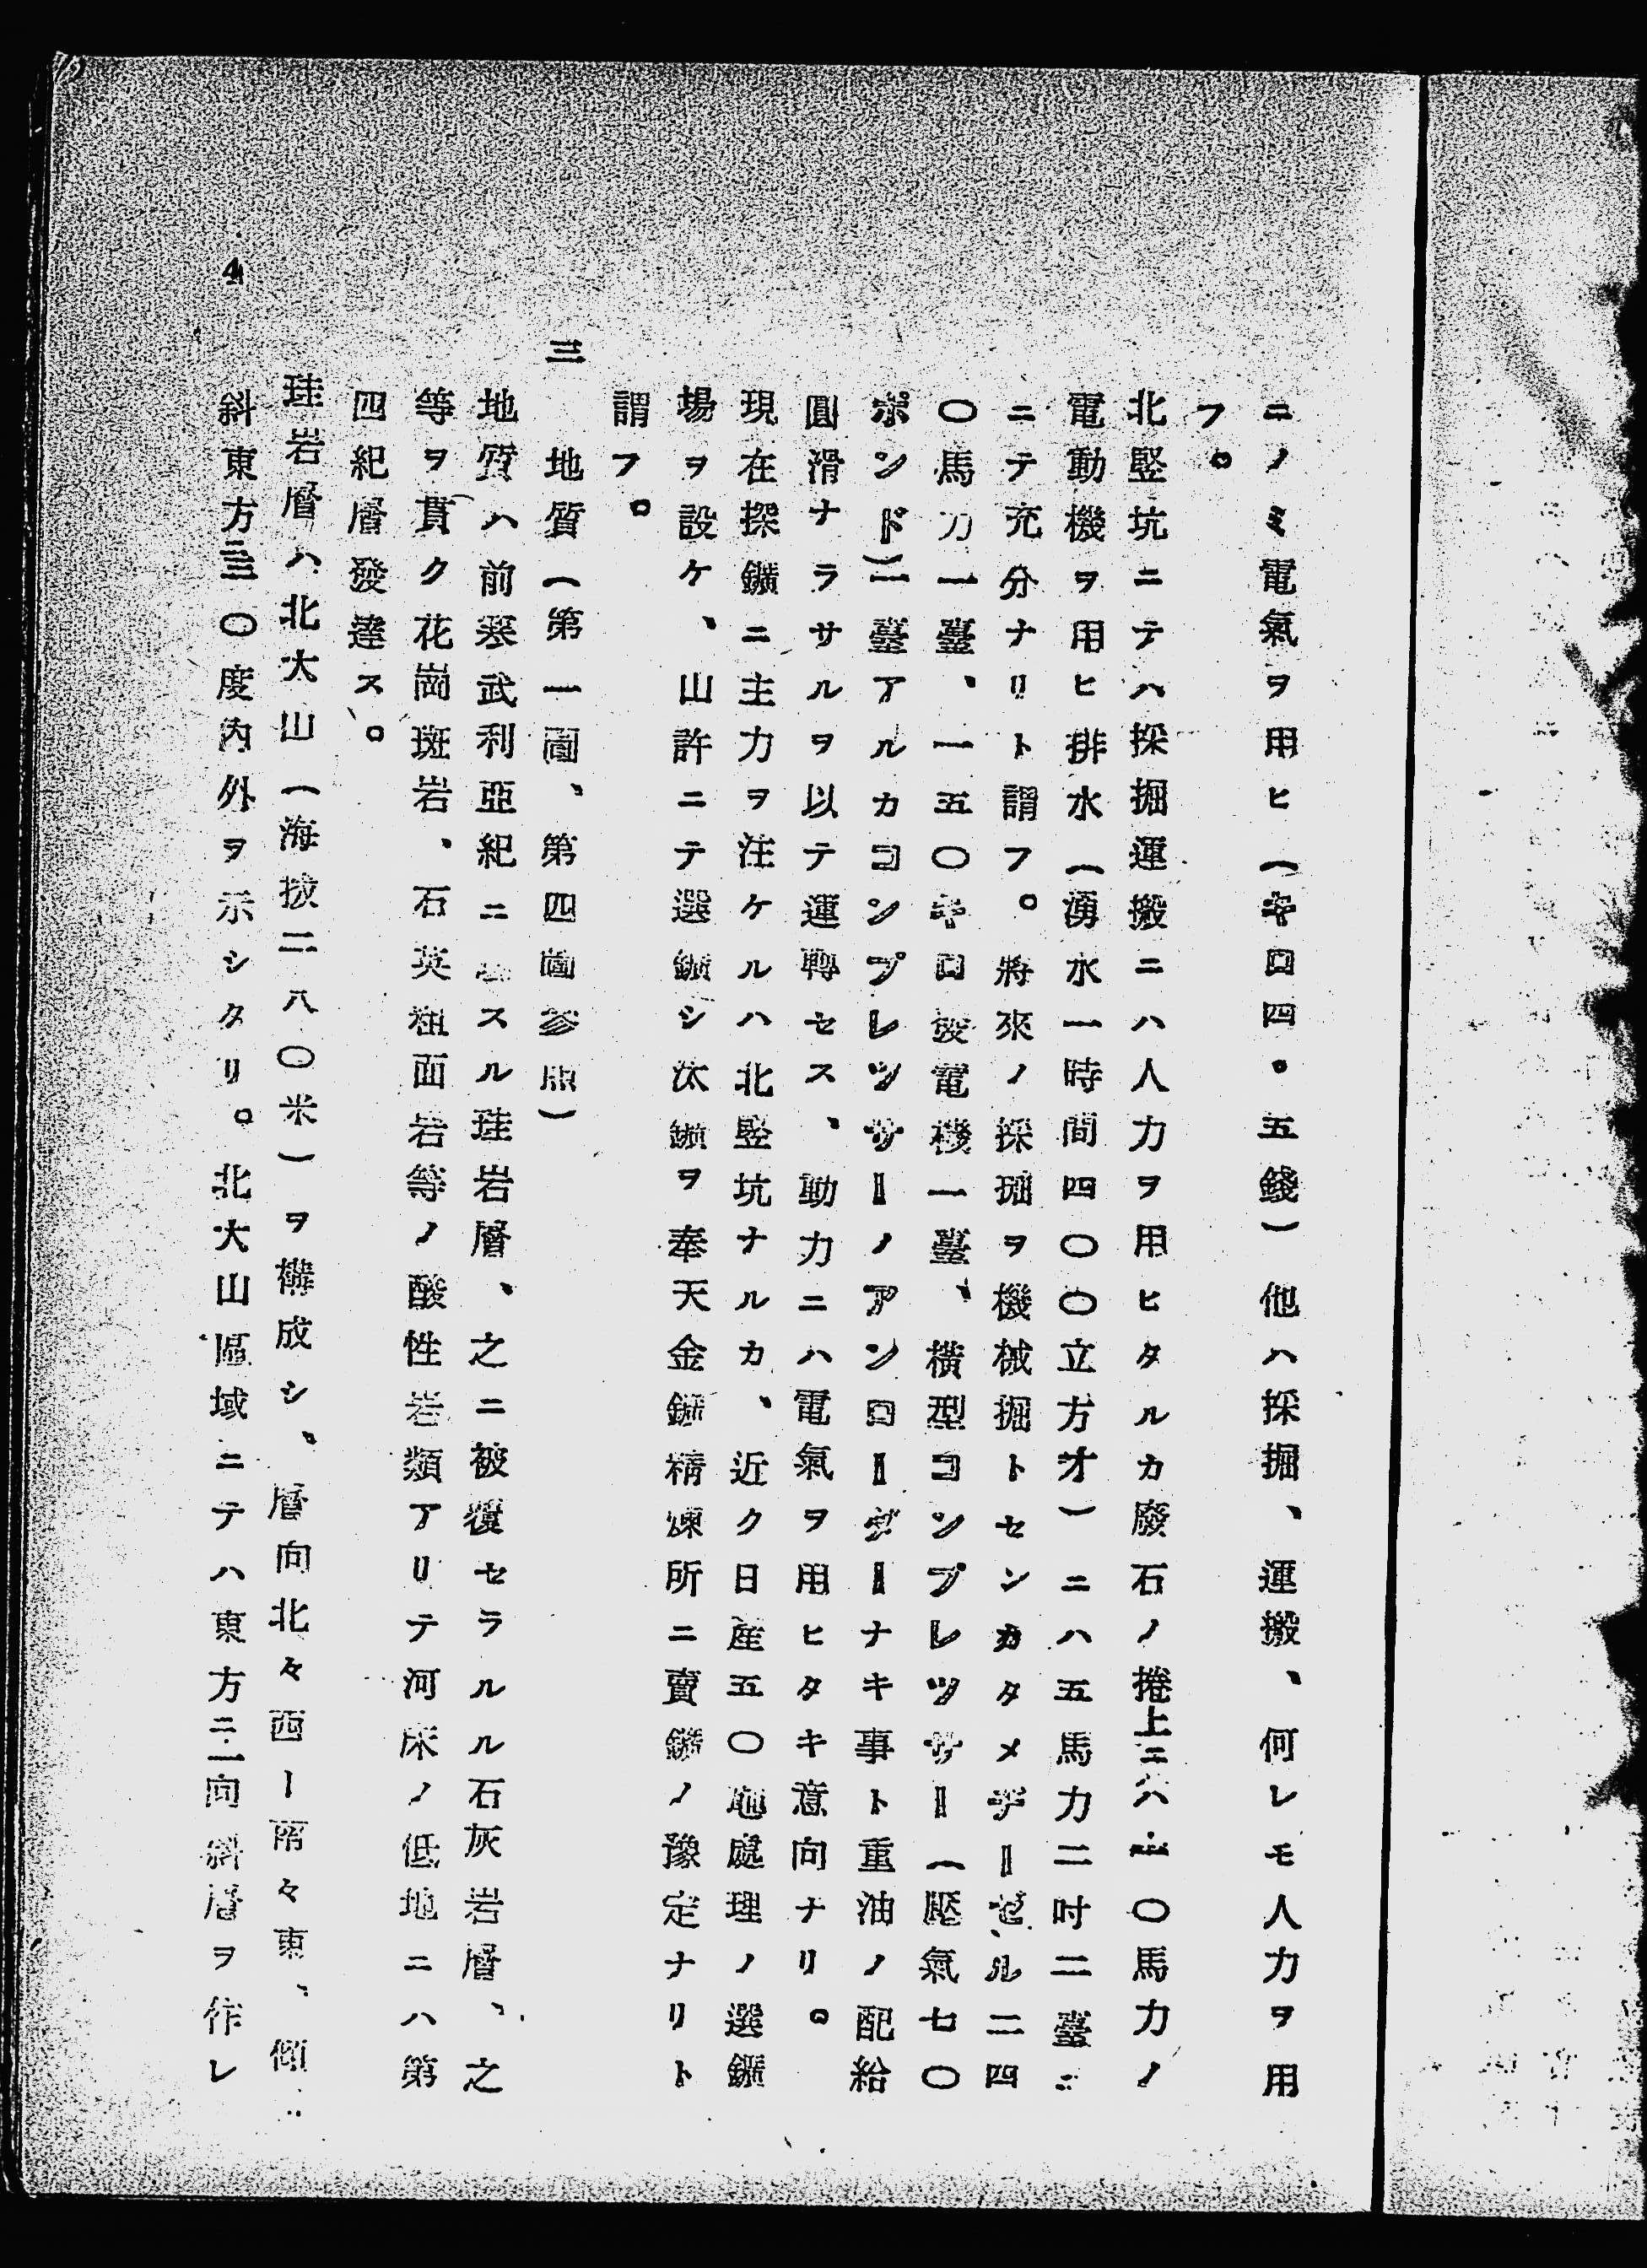 ニノミ電氣ヲ用ヒ（キロ四・五錢）他ハ採掘、運搬、何レモ人力ヲ用
フ。
北竪坑ニテハ採掘運搬ニハ人力ヲ用ヒタルカ廢石ノ捲上ニハ 〇馬力ノ
電動機ヲ用ヒ排水（湧水一時間四〇〇立方才）ニハ五馬力二吋二臺
ニテ充分ナリト謂フ。將來ノ採掘ヲ機械掘トセンカタメヂーゼル二四
〇馬力一臺、一五〇キロ發電機一臺、橫型コンプレツサー（壓氣七〇
ポンド）一臺アルカコンプレツサーノアンローダーナキ事ト重油ノ配給
圓滑ナラサルヲ以テ運轉セス、動力ニハ電氣ヲ用ヒタキ意向ナリ。
現在探鑛ニ主力ヲ注ケルハ北竪坑ナルカ、近ク日産五〇瓲處理ノ選鑛
場ヲ設ケ、山許ニテ選鑛シ汰鑛ヲ奉天金鑛精煉所ニ賣鑛ノ豫定ナリト
謂フ。
三　地質（第一圖、第四圖參照）
地質ハ前寒武利亞紀ニ スル珪岩層、之ニ被覆セラルル石灰岩層、之
等ヲ貫ク花崗斑岩、石英粗面岩等ノ酸性岩類アリテ河床ノ低地ニハ第
四紀層發達ス。
珪岩層ハ北大山（海拔二八〇米）ヲ構成シ、層向北々西ー南々東、傾
斜東方三〇度內外ヲ示シタリ。北大山區域ニテハ東方ニ向斜層ヲ作レ
4